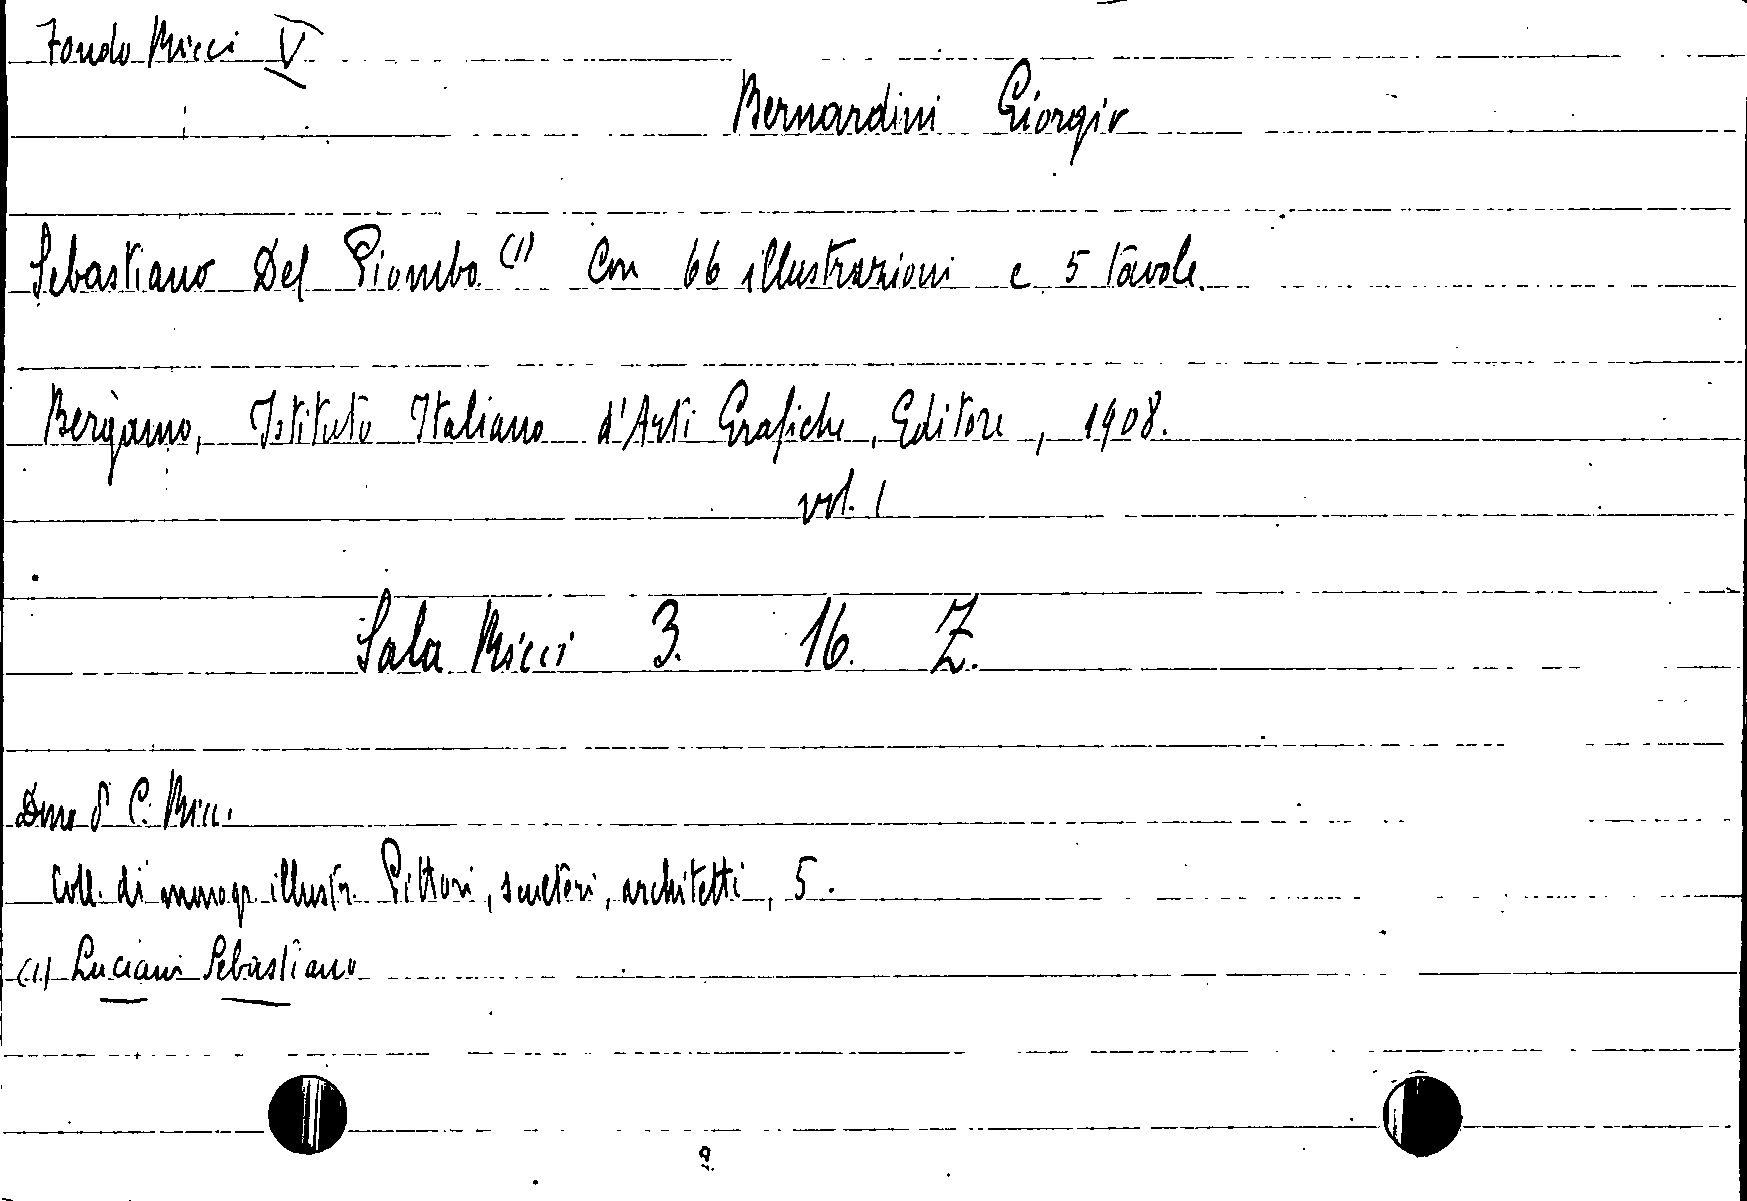 Fondo Ricci V
Bernardini Giorgio
Sebastiano Del Piombo (1) Con 66 illustrazioni e 5 tavole.
Bergamo, Istituto Italiano d'Arti Grafiche, Editore, 1908.
vol. 1
Sala Ricci 3. 16. Z.
Dono di C. Ricci
Coll. di monogr. illustr. Pittori, scultori, architetti, 5.
(1) Luciani Sebastiano